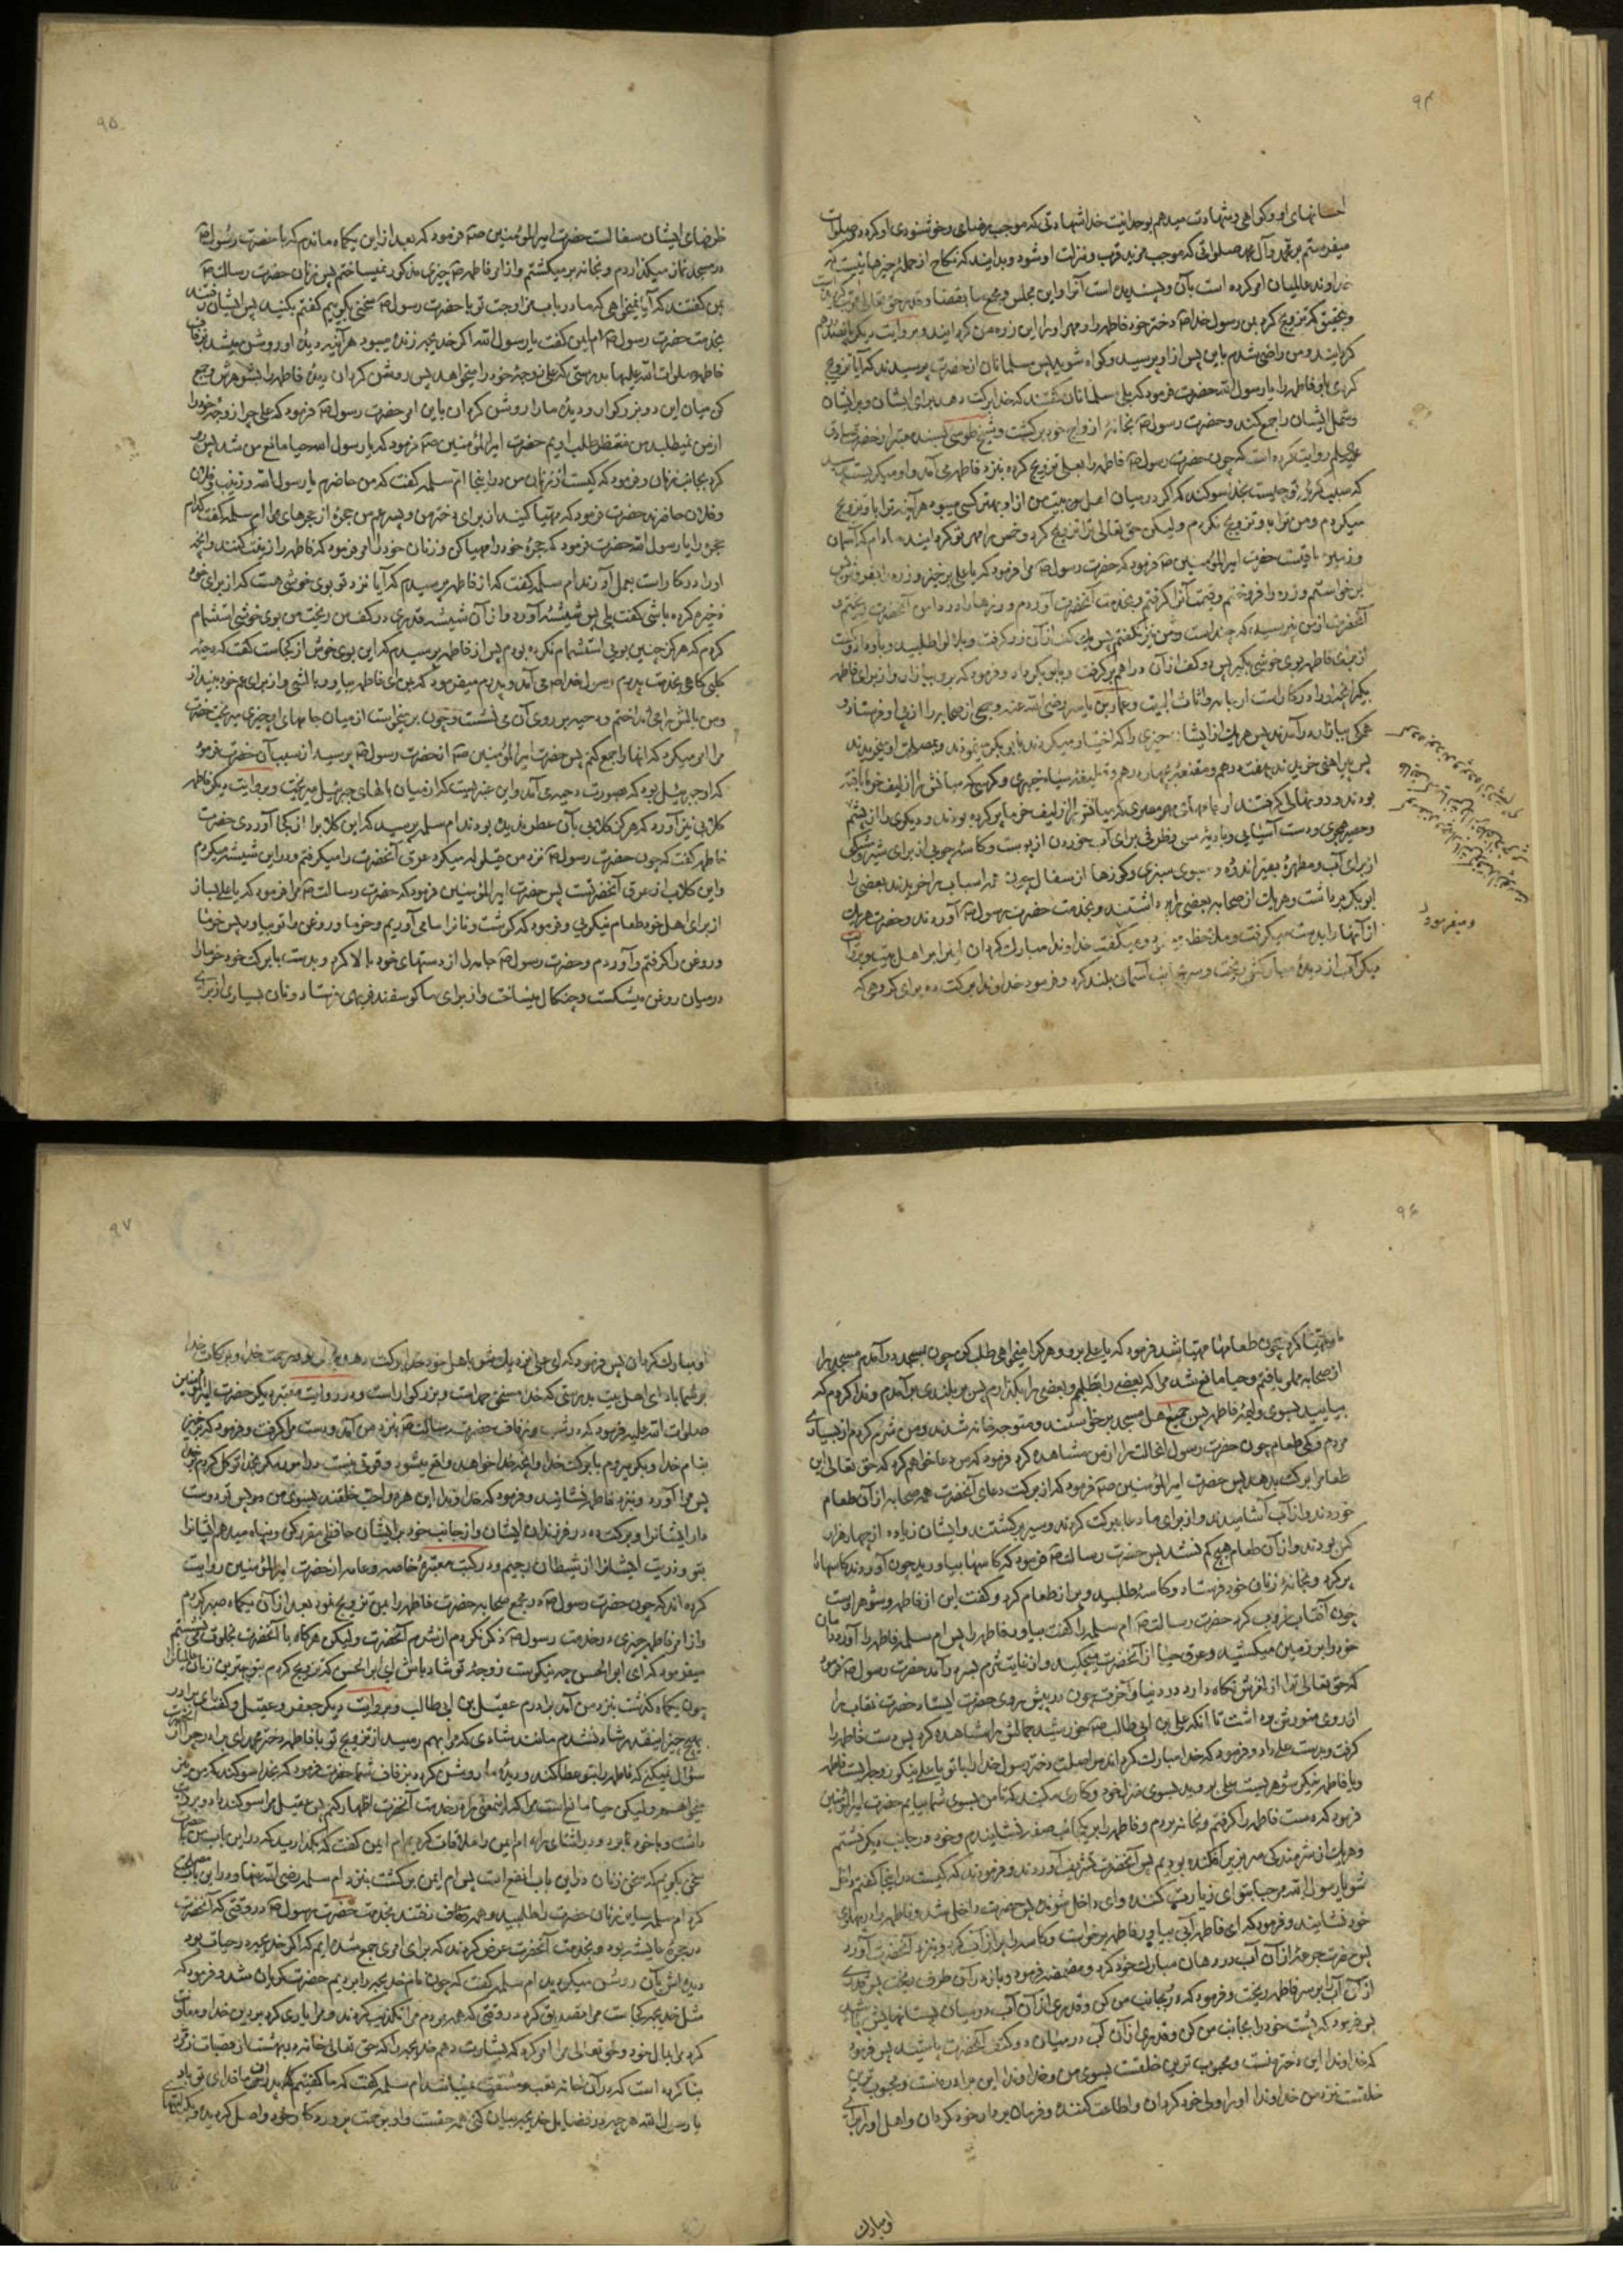 ۹۴
احسانهای او و گواهی و شهادت میدهم بوحدانیت خدا شهادتی که موجب رضای و خوشنودی او کرده و صلوات
میفرستم بر محمد و آل محمد صلواتی که موجب مزید قرب و منزلت او شود و بدانید که نکاح از جمله چیزهائیست که
خداوند عالمیان امر کرده است بآن و پسندیده است آنرا و این مجلس و مجمع ما بقضا و قدر حق تعالی
و بتحقیق که تزویج کرد بمن رسول خدا دختر خود فاطمه را و مهر او را این زره من گردانید و بروایت دیگر پانصد درهم
گردانید و من راضی شدم باین پس از او پرسید و گواه شوید پس مسلمانان از حضرت پرسیدند که آیا تزویج
کردی باو فاطمه را یا رسول الله حضرت فرمود که بلی مسلمانان گفتند که خدا برکت دهد برای ایشان و بر ایشان
و شمل ایشان را جمع کند و حضرت رسول بخانهٔ ازواج خود برگشت و شیخ طوسی بسند معتبر از حضرت صادق
روایت کرده است که چون حضرت رسول فاطمه را بعلی تزویج کرد بنزد فاطمه آمد و او میگریست
که سبب گریهٔ تو چیست بخدا سوگند که اگر در میان اهل بیت من از او بهتر کسی میبود هر آینه ترا باو تزویج
میکردم و من ترا باو تزویج نکردم و لیکن حق تعالی ترا تزویج کرد و خمس را مهر تو گردانید مادام که آسمان
و زمین باقیست حضرت امیرالمؤمنین فرمود که حضرت رسول مرا فرمود که یا علی برخیز و زره را بفروش پس
برخواستم و زره را فروختم و قیمت آنرا گرفتم و بخدمت آنحضرت آوردم و زرها را در دامن آنحضرت ریختم و
آنحضرت از من نپرسید که چند است و من نیز نگفتم پس یک کف از آن زر گرفت و بلال را طلبید و باو داد و گفت
از برای فاطمه بوی خوشی بگیر پس دو کف از آن دراهم برگرفت و بابوبکر داد و فرمود که برو ببازار و از برای فاطمه
بگیر آنچه او را در کار است از جامه و اثاث البیت و عمار بن یاسر رضی الله عنه و جمعی از صحابه را از پی او فرستاد و
همگی ببازار درآمدند پس هر یک از ایشان چیزی را که اختیار میکردند بابوبکر مینمودند و بمصلحت او میخریدند
پس پیراهنی خریدند بهفت درهم و مقنعهٔ بچهار درهم و قطیفهٔ سیاه خیبری و کرسی که میانش را از لیف خرما بافته
بودند و دو نهالی گرفتند از جامهای مصری که میان یکی را از لیف خرما پر کرده بودند و دیگری را از پشم
و حصیر هجری و دست آسیائی و بادیهٔ مسی و ظرفی برای آب خوردن از پوست و کاسهٔ چوبی از برای شیر و مشکی
از برای آب و مطهرهٔ بقیر اندوده و سبوی سبزی و کوزها از سفال چون همه اسباب را خریدند بعضی را
ابوبکر برداشت و هر یک از صحابه بعضی را برداشتند و بخدمت حضرت رسول آوردند و حضرت هر یک
از آنها را بدست میگرفت و ملاحظه مینمود و میگفت خداوندا مبارک گردان اینرا بر اهل بیت
آب از دیدهٔ مبارکش ریخت و سر بجانب آسمان بلند کرد و فرمود خداوندا برکت ده برای گروهی که
و میفرمود
۹۵
ظرفهای ایشان سفالست حضرت امیرالمؤمنین فرمود که بعد از این یکماه ماندم که با حضرت رسول
در مسجد نماز میگذاردم و بخانه بر میگشتم و از امر فاطمه چیزی مذکور نمیساختم پس زنان حضرت رسالت
بمن گفتند که آیا نمیخواهی که ما در باب مزاوجت تو با حضرت رسول سخنی بگوییم گفتم بکنید پس ایشان رفتند
بخدمت حضرت رسول ام ایمن گفت یا رسول الله اگر خدیجه زنده میبود هر آینه دیدهٔ او روشن میشد بزفاف
فاطمه صلوات الله علیها بدرستی که علی زوجهٔ خود را میخواهد پس روشن گردان دیدهٔ فاطمه را بشوهرش و جمع
کن میان این دو بزرگوار و دیدهٔ ما را روشن گردان باین امر حضرت رسول فرمود که علی چرا زوجهٔ خود را
از من نمیطلبد من منتظر طلب اویم حضرت امیرالمؤمنین فرمود که یا رسول الله حیا مانع من شد پس رو
کرد بجانب زنان و فرمود که کیست از زنان من در اینجا ام سلمه گفت که من حاضرم یا رسول الله و زینب و فلان
و فلان حاضرند حضرت فرمود که مهیا کنید از برای دختر من و پسر عم من حجرهٔ از حجرهای مرا ام سلمه گفت کدام
حجره را یا رسول الله حضرت فرمود که حجرهٔ خود را مهیا کن و زنان خود را امر فرمود که فاطمه را زینت کنند و آنچه
او را در کار است بعمل آورند ام سلمه گفت که از فاطمه پرسیدم که آیا نزد تو بوی خوشی هست که از برای خود
ذخیره کرده باشی گفت بلی پس شیشهٔ آورد و از آن شیشه قدری در کف من ریخت من بوی خوشی استشمام
کردم که هرگز چنین بویی استشمام نکرده بودم پس از فاطمه پرسیدم که این بوی خوش از کجاست گفت که دحیهٔ
کلبی گاهی بخدمت پدرم رسول خدا می آمد و پدرم میفرمود که ای فاطمه بیاور بالشی و از برای عم خود بینداز
و من بالش را می انداختم و دحیه بر روی آن می نشست و چون بر میخواست از میان جامهای او چیزی میریخت حضرت
مرا امر میکرد که اینها را جمع کنم پس حضرت امیرالمؤمنین از حضرت رسول پرسید از سبب آن حضرت فرمود
که او جبرئیل بود که بصورت دحیه می آمد و این عنبریست که از میان بالهای جبرئیل میریخت و بروایت دیگر فاطمه
گلابی نیز آورد که هرگز گلابی بآن عطر ندیده بودند ام سلمه پرسید که این گلاب را از کجا آوردی حضرت
فاطمه گفت که چون حضرت رسول نزد من قیلوله میکرد عرق آنحضرت را میگرفتم و در این شیشه میکردم
و این گلاب از عرق آنحضرتست پس حضرت امیرالمؤمنین فرمود که حضرت رسالت مرا فرمود که یا علی بساز
از برای اهل خود طعام نیکویی و فرمود که گوشت و نانرا ما می آوریم و خرما و روغن را تو بیاور پس خرما
و روغن را گرفتم و آوردم و حضرت رسول جامه را از دستهای خود بالا کرد و بدست بابرکت خود خرما را
در میان روغن میشکست و چنکال میساخت و از برای ما گوسفند فربهی فرستاد و نان بسیاری از برای
۹۶
ما مهیا کرد چون طعامها مهیا شد فرمود که یا علی برو و هر که را میخواهی طلب کن چون بمسجد درآمدم مسجد را
از صحابه مملو یافتم و حیا مانع شد مرا که بعضی را بطلبم و بعضی را بگذارم پس بر بلندی برآمدم و ندا کردم که
بیایید بسوی ولیمهٔ فاطمه پس جمیع اهل مسجد برخواستند و متوجه خانه شدند و من شرم کردم از بسیاری
مردم و کمی طعام چون حضرت رسول این حالت را از من مشاهده کرد فرمود که من دعا خواهم کرد که حق تعالی این
طعام را برکت بدهد پس حضرت امیرالمؤمنین فرمود که از برکت دعای آنحضرت همه صحابه از آن طعام
خوردند و از آب آشامیدند و از برای ما دعا ببرکت کردند و سیر برگشتند و ایشان زیاده از چهار هزار
کس بودند و از آن طعام هیچ کم نشد پس حضرت رسالت فرمود که کاسها بیاورید چون آوردند کاسها را
پر کرد و بخانهٔ زنان خود فرستاد و کاسهٔ طلبید و پر از طعام کرد و گفت این از فاطمه و شوهر اوست
چون آفتاب غروب کرد حضرت رسالت ام سلمه را گفت بیاور فاطمه را پس ام سلمه فاطمه را آورد و دامان
خود را بر زمین میکشید و عرق حیا از آنحضرت میچکید و از غایت شرم بسر درآمد حضرت رسول فرمود
که حق تعالی ترا از لغزش نگاه دارد در دنیا و آخرت چون در پیش روی حضرت ایستاد حضرت نقاب را
از روی منورش برداشت تا آنکه علی بن ابی طالب خورشید جمالش را مشاهده کرد پس دست فاطمه را
گرفت و بدست علی داد و فرمود که خدا مبارک گرداند مواصلت دختر رسول خدا را با تو یا علی نیکو زوجه ایست فاطمه
و یا فاطمه نیکو شوهریست علی بروید بسوی منزل خود و کاری مکنید که تا من بسوی شما بیایم حضرت امیرالمؤمنین
فرمود که دست فاطمه را گرفتم و بخانه بردم و فاطمه را در یکجانب صفه نشانیدم و خود در جانب دیگر نشستم
و هر یک از شرمندگی سر بزیر افکنده بودیم پس آنحضرت تشریف آوردند و فرمودند که کیست در اینجا گفتم داخل
شو یا رسول الله مرحبا بتو ای زیارت کننده و ای داخل شونده پس حضرت داخل شد و فاطمه را در پهلوی
خود نشانید و فرمود که ای فاطمه آبی بیاور فاطمه برخواست و کاسه را پر از آب کرد و بنزد آنحضرت آورد
پس حضرت جرعهٔ از آن آب در دهان مبارک خود کرد و مضمضه فرمود و باز در آن ظرف ریخت پس قدری
از آن آب را بر سر فاطمه ریخت و فرمود که رو بجانب من کن و قدری از آن آب در میان پستانهایش پاشید
پس فرمود که پشت خود را بجانب من کن و قدری از آن آب در میان دو کتف آنحضرت پاشید پس فرمود
که خداوندا این دختر منست و محبوب ترین خلقست بسوی من و خداوندا این برادر منست و محبوب ترین
خلقست نزد من خداوندا او را ولی خود گردان و اطاعت کننده و فرمان بردار خود گردان و اهل او را برای
او مبارک
۹۷
او مبارک گردان پس فرمود که ای علی نزدیک شو باهل خود خدا برکت دهد و رحمت خدا و برکات خدا
بر شما باد ای اهل بیت بدرستی که خدا مستحق حمد است و بزرگوار است و در روایت معتبر دیگر حضرت امیرالمؤمنین
صلوات الله علیه فرمود که در شب زفاف حضرت رسالت بنزد من آمد و دست مرا گرفت و فرمود که برخیز
بنام خدا و بگو میروم با برکت خدا و آنچه خدا خواهد واقع میشود و قوتی نیست در امور مگر بخدا توکل کردم بر خدا
پس مرا آورد و بنزد فاطمه نشانید و فرمود که خداوندا این هر دو احب خلقند بسوی من پس تو دوست
دار ایشانرا و برکت ده در فرزندان ایشان و از جانب خود بر ایشان حافظی مقرر کن و پناه میدهم ایشانرا
بتو و ذریت ایشانرا از شیطان رجیم و در کتب معتبرهٔ خاصه و عامه از حضرت امیرالمؤمنین روایت
کرده اند که چون حضرت رسول در مجمع صحابه حضرت فاطمه را بمن تزویج نمود بعد از آن یکماه صبر کردم
و از امر فاطمه چیزی در خدمت رسول ذکر نکردم از شرم آنحضرت و لیکن هرگاه با آنحضرت بخلوت می نشستم
میفرمود که ای ابوالحسن چه نیکوست زوجهٔ تو شاد باش ای ابوالحسن که تزویج کردم بتو بهترین زنان عالمیانرا
چون یکماه گذشت بنزد من آمد برادرم عقیل بن ابی طالب و بروایت دیگر جعفر و عقیل و گفت ای برادر
بهیچ چیز اینقدر شاد نشدم مانند شادی که مرا بهم رسید از تزویج تو با فاطمه دختر محمد ای برادر چرا از آنحضرت
سؤال نمیکنی که فاطمه را بتو عطا کند و دیدهٔ ما روشن گردد بزفاف شما حضرت فرمود که بخدا سوگند که من نیز
میخواهم و لیکن حیا مانع است مرا که اینمعنی را در خدمت آنحضرت اظهار کنم پس عقیل مرا سوگند داد و
داشت و با خود برد و در اثنای راه ام ایمن را ملاقات کردیم ام ایمن گفت که بگذارید که در این باب من با حضرت
سخن بگویم که سخن زنان در این باب انفع است پس ام ایمن برگشت بنزد ام سلمه رضی الله عنها و در این باب
کرد ام سلمه سایر زنان حضرت را طلبید و همه رفتند بخدمت حضرت رسول در وقتی که آنحضرت
در حجرهٔ عایشه بود و بخدمت آنحضرت عرض کردند که برای امری جمع شده ایم که اگر خدیجه در حیات بود
دیده اش بآن روشن میگردید ام سلمه گفت که چون نام خدیجه را بردیم حضرت گریان شد و فرمود که
مثل خدیجه کجاست مرا تصدیق کرد در وقتی که همه مردم مرا تکذیب کردند و مرا یاری کرد بر دین خدا و معاونت
کرد مرا بمال خود و حق تعالی مرا امر کرد که بشارت دهم خدیجه را که حق تعالی خانه در بهشت از قصبات زمرد
بنا کرده است که در آن خانه تعب و مشقت نمیباشد ام سلمه گفت که ما گفتیم که پدران و مادران ما فدای تو باد
یا رسول الله هر چه در فضایل خدیجه بیان کنی همه حقست و او برحمت پروردگار خود واصل گردیده